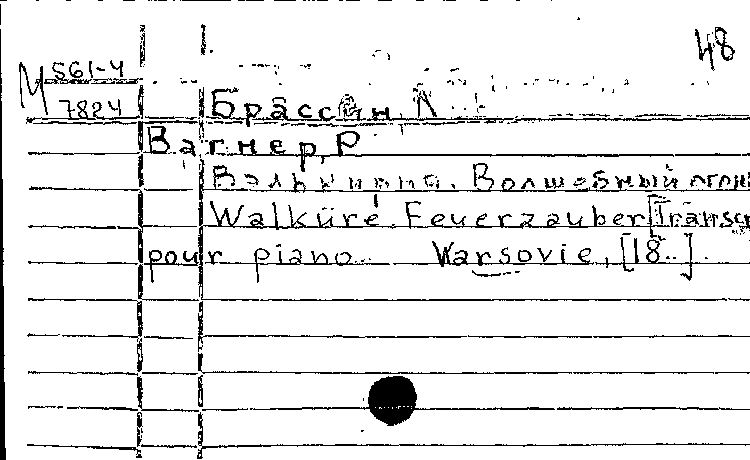 48
М 561-4
7824
Брассин, Л
Вагнер, Р
Валькирия. Волшебный огонь
Walküre. Feuerzauber [Transcr
pour piano Warsovie, [18..].